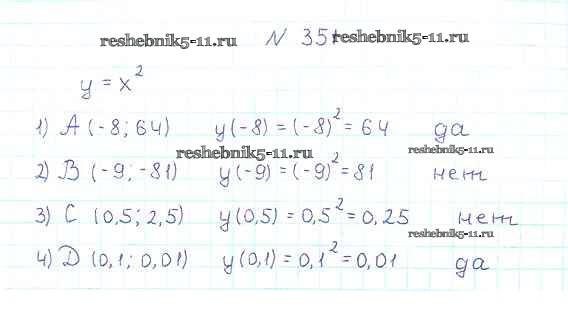 reshebnik5-11.ru N 351 reshebnik5-11.ru
y = x²
1) A (-8; 64) y(-8) = (-8)² = 64 да
reshebnik5-11.ru reshebnik5-11.ru
2) B (-9; -81) y(-9) = (-9)² = 81 нет
3) C (0,5; 2,5) y(0,5) = 0,5² = 0,25 нет
reshebnik5-11.ru
4) D (0,1; 0,01) y(0,1) = 0,1² = 0,01 да